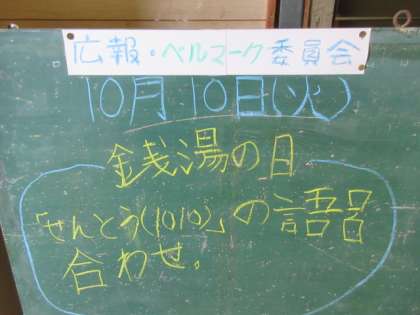 広報・ベルマーク委員会
10月10日(火)
銭湯の日
「せんとう(1010)」の語呂
合わせ。